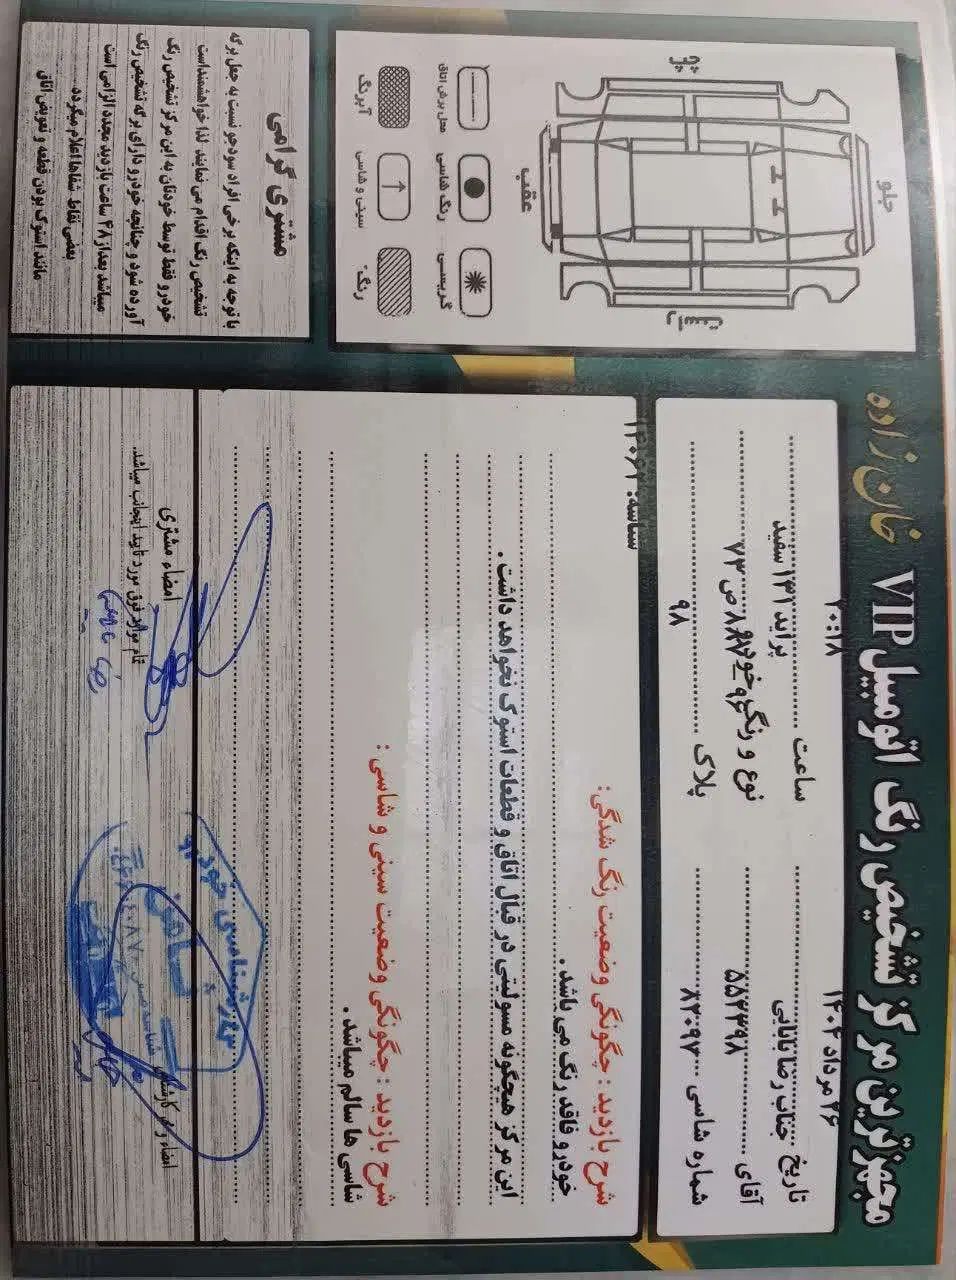 مجهزترین مرکز تشخیص رنگ اتومبیل VIP خان زاده
۲۶ مرداد ۱۴۰۴
۲۰:۱۸
تاریخ
ساعت
جناب رضا بابایی
پراید ۱۳۱ سفید
آقای
نوع و رنگ خودرو
۵۵۲۳۹۸
شماره شاسی
۸۲۰۹۷
پلاک
۹۸
شناسه:
شرح بازدید : چگونگی وضعیت رنگ شدگی:
خودرو فاقد رنگ می باشد.
این مرکز هیچگونه مسولیتی در قبال اتاق و قطعات استوک نخواهد داشت.
شرح بازدید : چگونگی وضعیت سینی و شاسی :
شاسی ها سالم میباشد.
امضاء مشتری
تمام موارد فوق مورد تایید اینجانب میباشد.
جلو
عقب
چپ
راست
محل برش اتاق
رنگ شاسی
گریسی
آبرنگ
سینی و شاسی
رنگ
مشتری گرامی
با توجه به اینکه برخی افراد سودجو نسبت به جعل برگه
تشخیص رنگ اقدام می نمایند لذا خواهشمنداست
خودرو فقط توسط خودتان به این مرکز تشخیص رنگ
آورده شود و چنانچه خودرو دارای برگه تشخیص رنگ
میباشد بعداز ۴۸ ساعت بازدید مجدد الزامی است
بعضی نقاط شفاها اعلام میگردد
مانند استوک بودن قطعه و تعویض اتاق